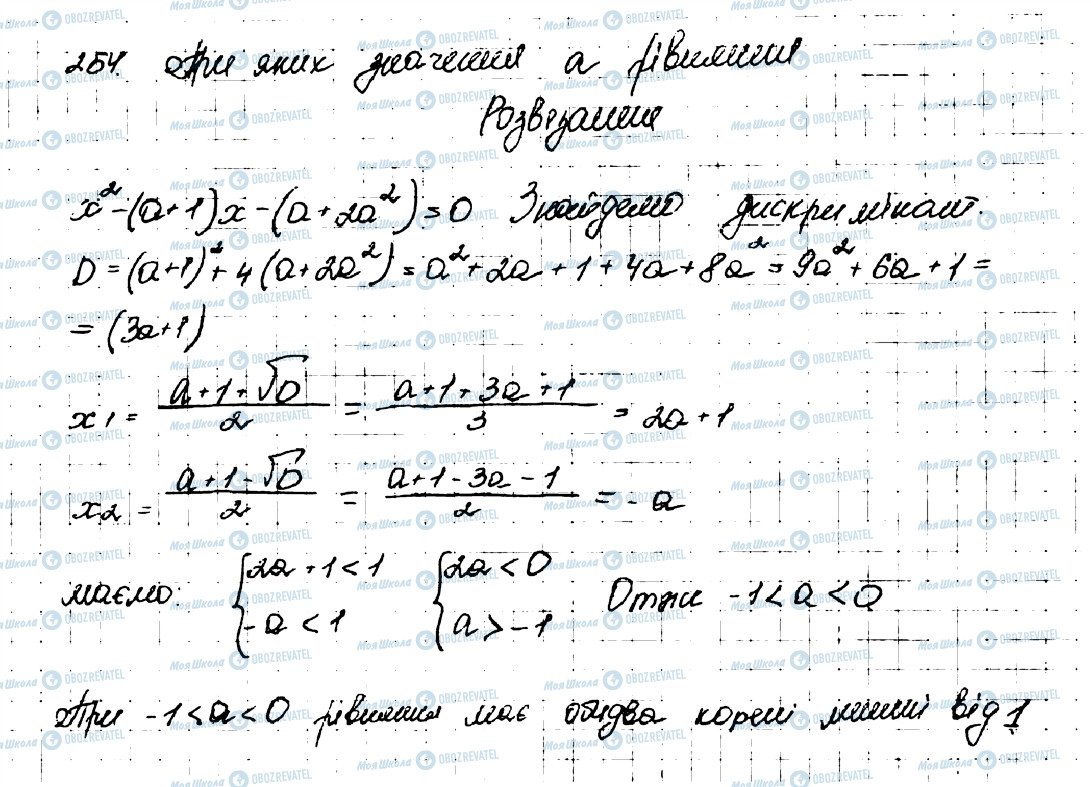 254. При яких значення a рівняння
Розвязання
x² - (a + 1)x - (a + 2a²) = 0 Знайдемо дискримінант.
D = (a + 1)² + 4(a + 2a²) = a² + 2a + 1 + 4a + 8a² = 9a² + 6a + 1 =
= (3a + 1)
x1 = (a + 1 + √D)/2 = (a + 1 + 3a + 1)/3 = 2a + 1
x2 = (a + 1 - √D)/2 = (a + 1 - 3a - 1)/2 = -a
маємо: { 2a + 1 < 1 { 2a < 0 Отже -1 < a < 0
-a < 1 a > -1
При -1 < a < 0 рівняння має обидва корені менші від 1
Моя Школа OBOZREVATEL